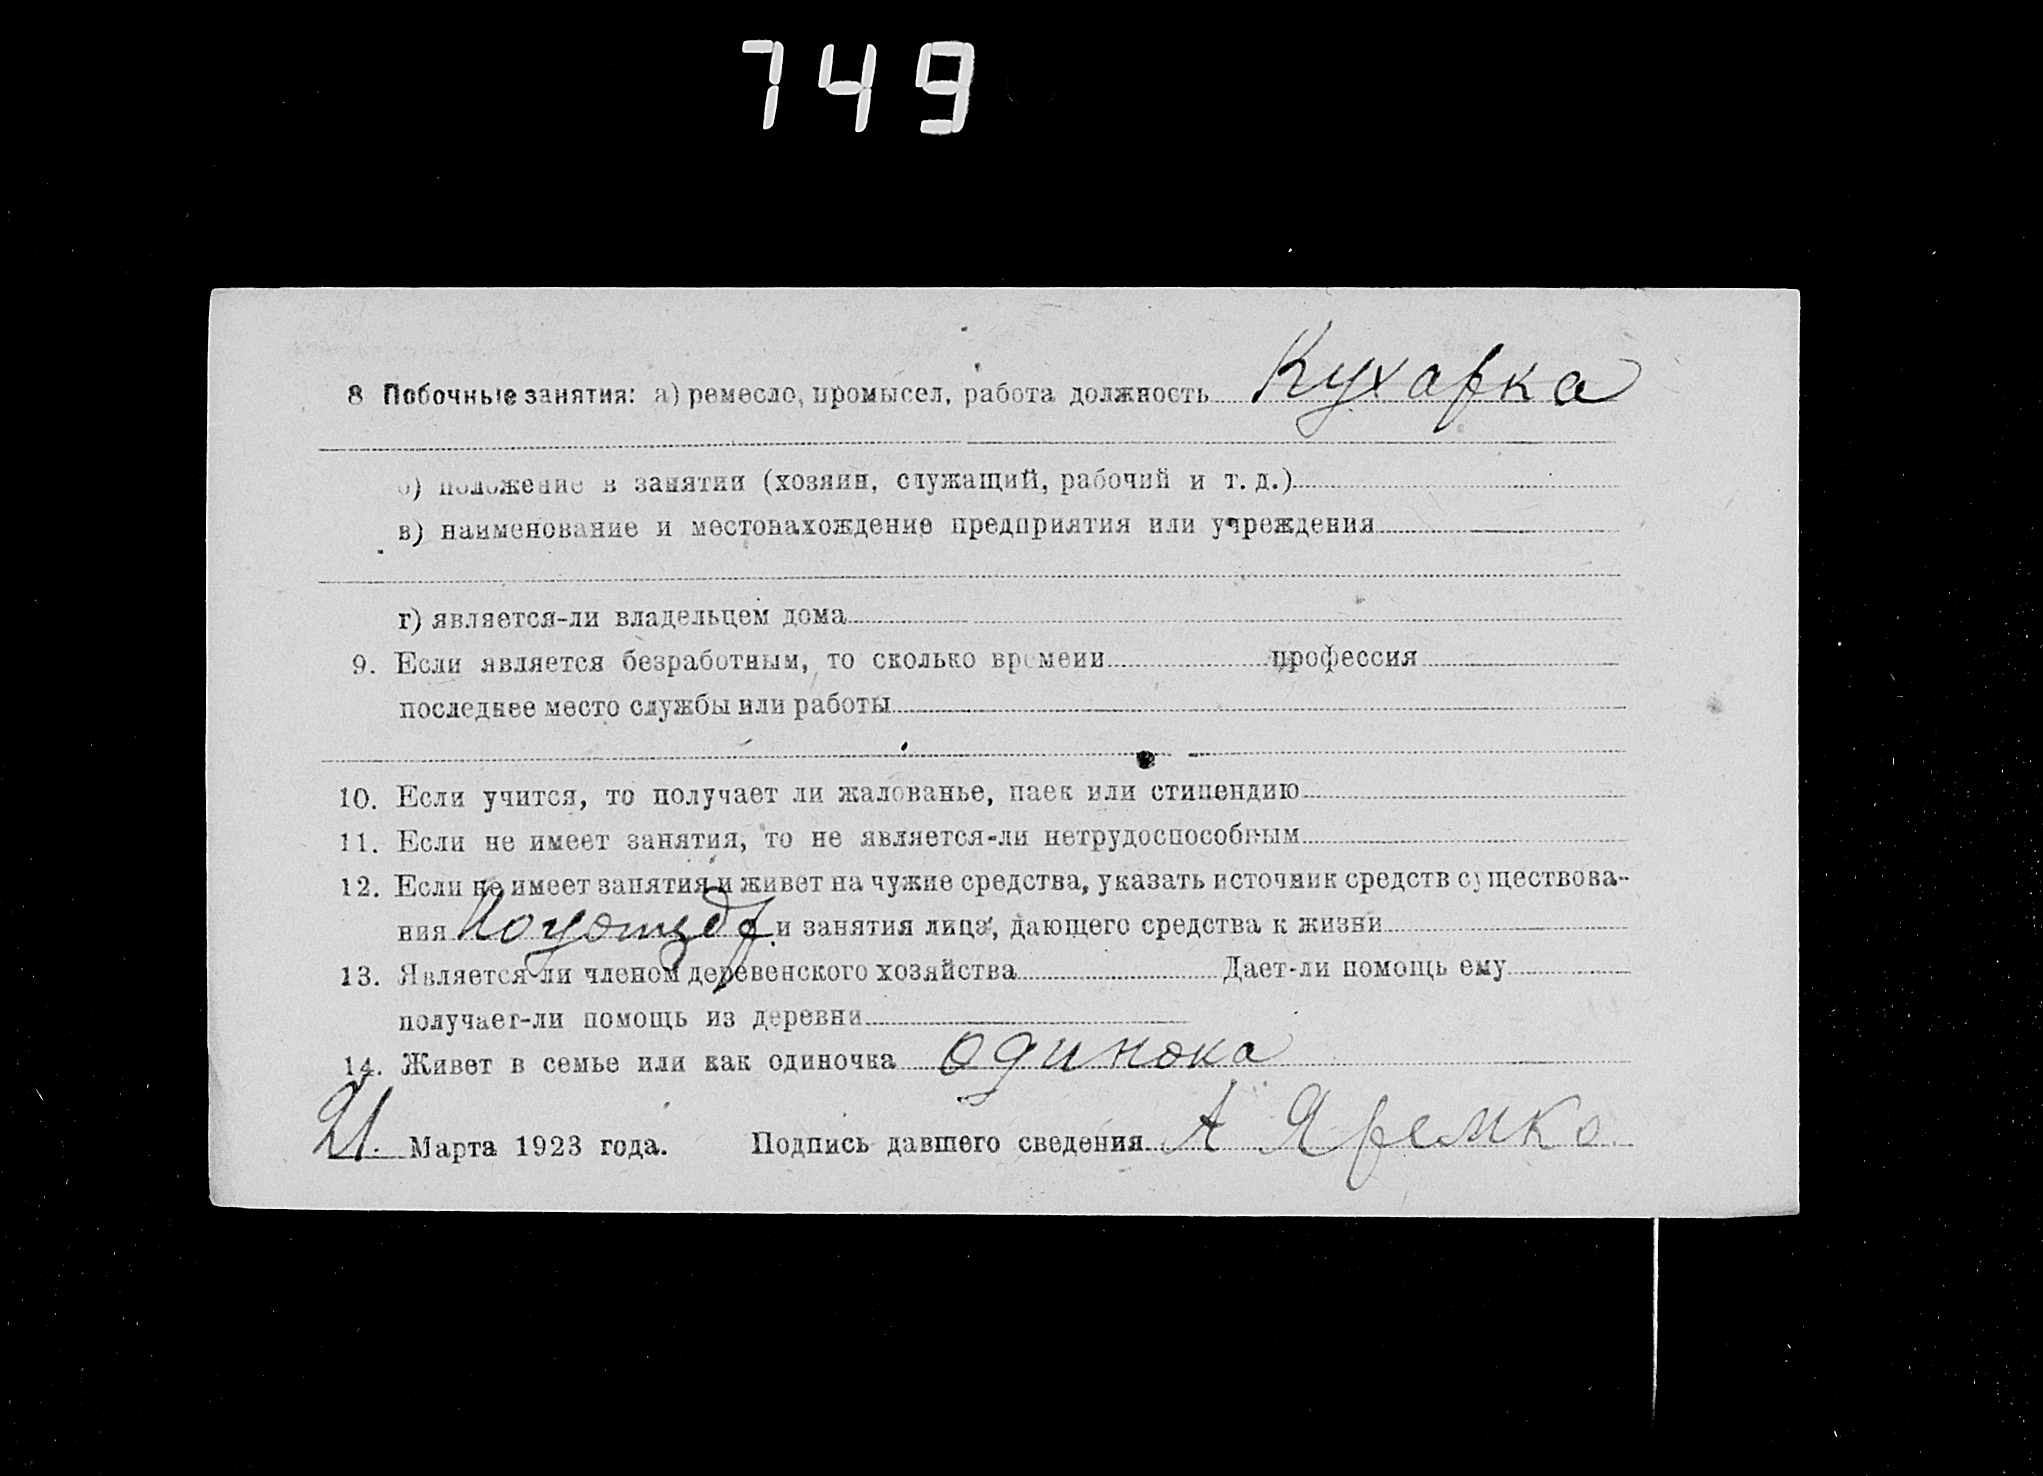 749
8 Побочные занятия: а) ремесло, промысел, работа должность Кухарка
б) положение в занятии (хозяин, служащий, рабочий и т. д.)
в) наименование и местонахождение предприятия или учреждения
г) является-ли владельцем дома
9. Если является безработным, то сколько времени профессия
последнее место службы или работы
10. Если учится, то получает ли жалованье, паек или стипендию
11. Если не имеет занятия, то не является-ли нетрудоспособным
12. Если не имеет занятия и живет на чужие средства, указать источник средств существова-
ния и занятия лица, дающего средства к жизни
13. Является-ли членом деревенского хозяйства Дает-ли помощь ему
получает-ли помощь из деревни
14. Живет в семье или как одиночка одинока
21. Марта 1923 года. Подпись давшего сведения А Яремко